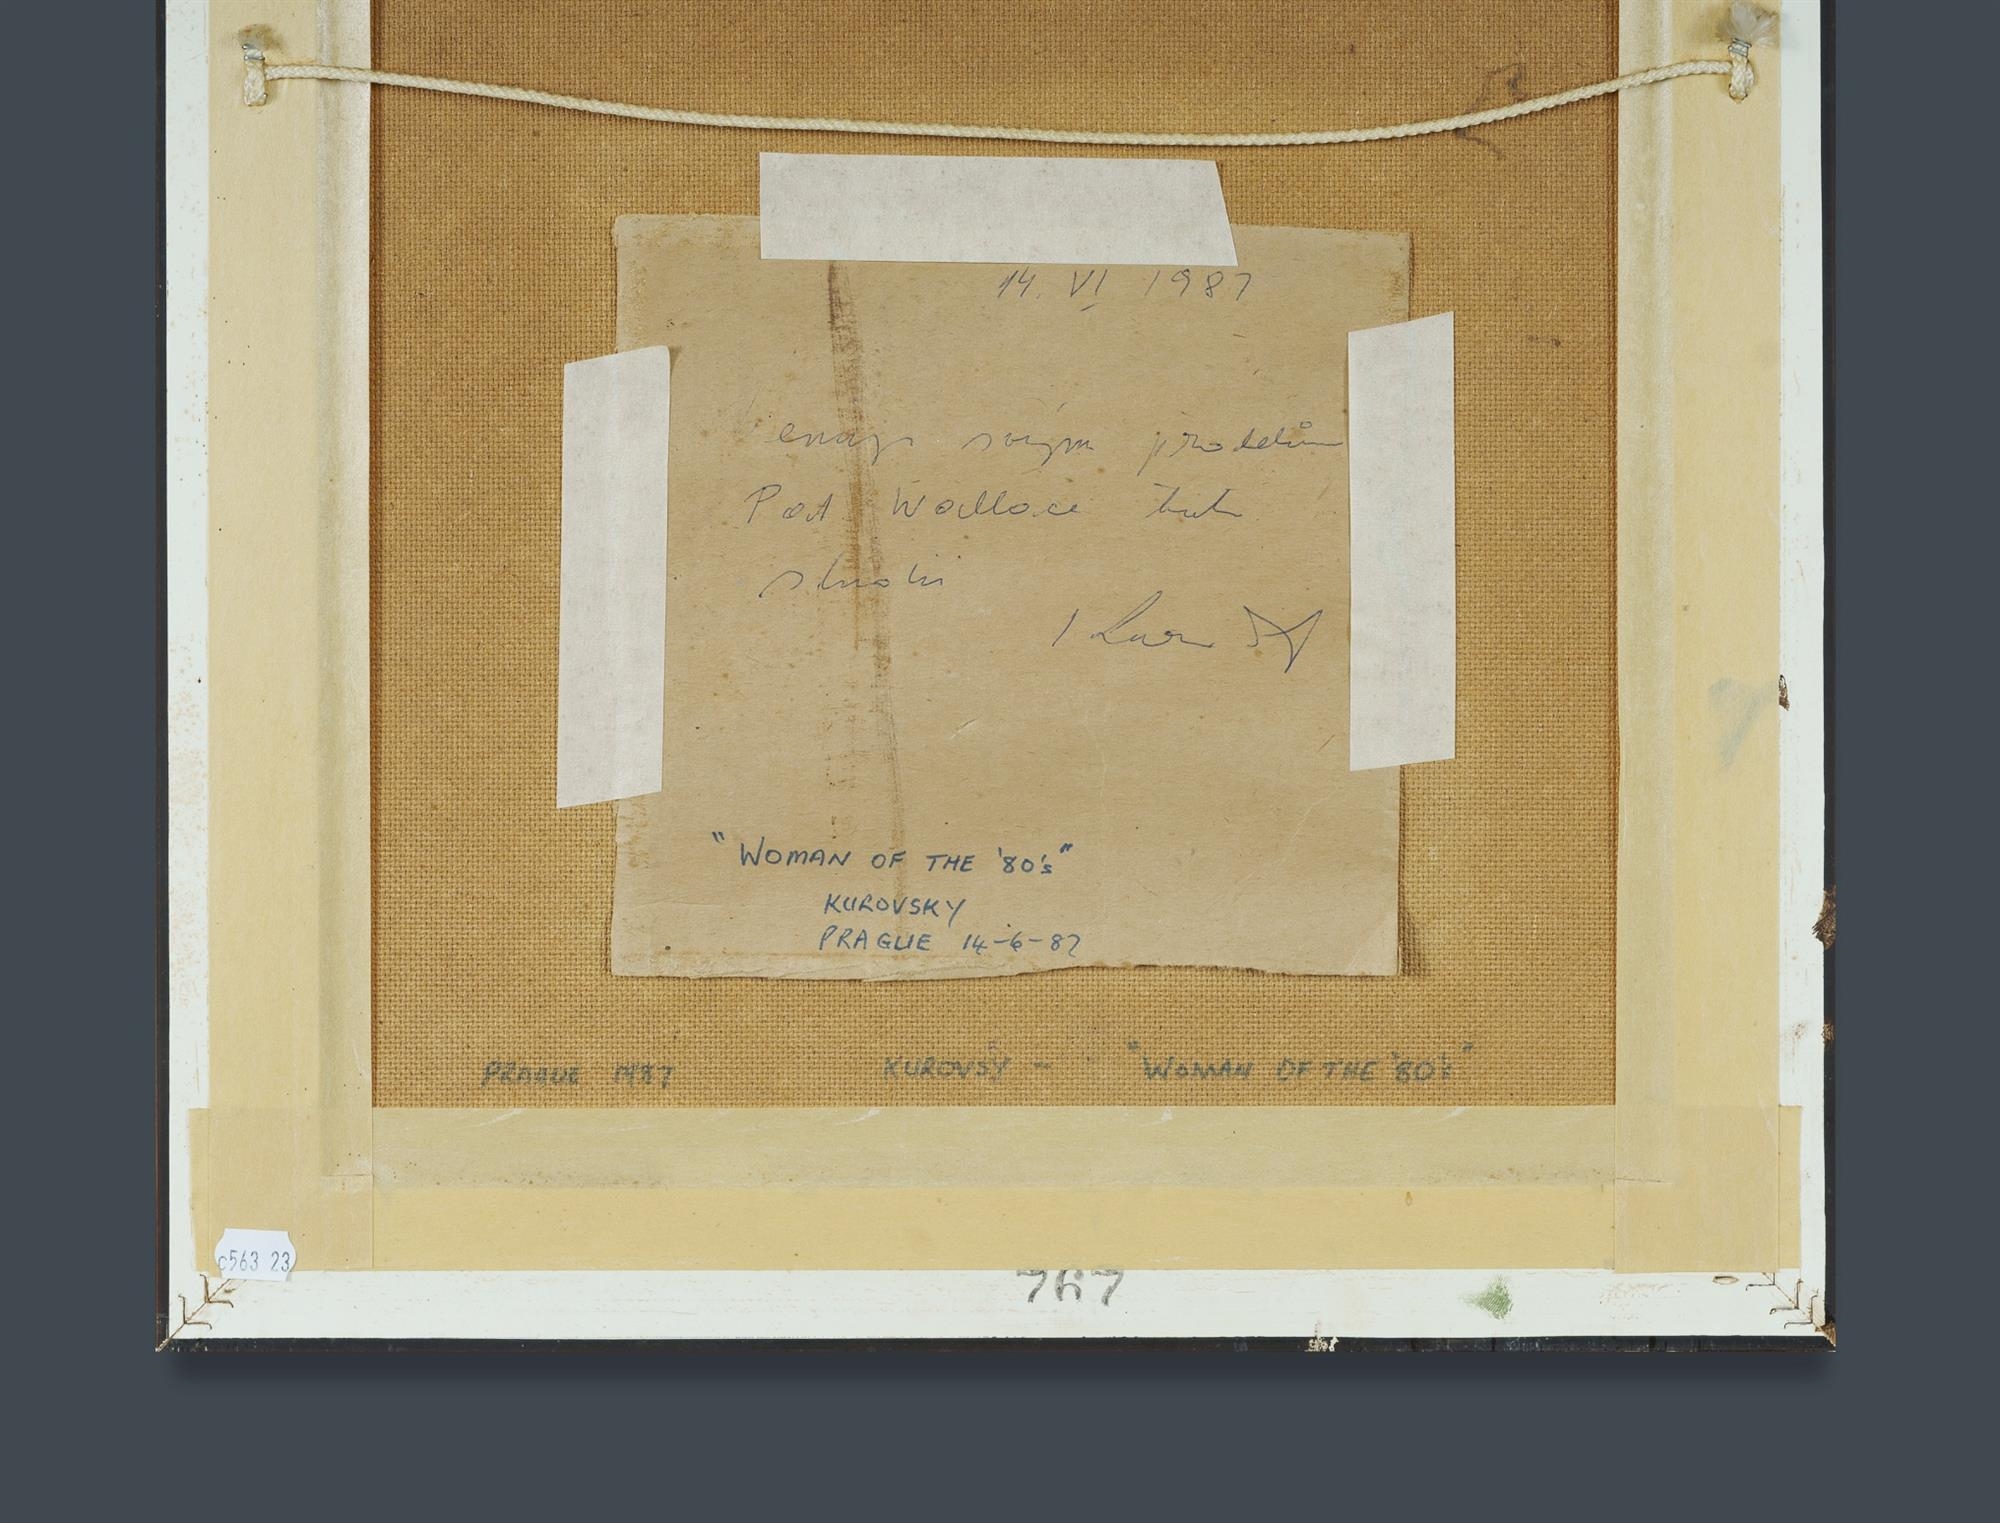 14. VI 1987
Věnuji svým přátelům
Pat Wallace tuto
studii
"WOMAN OF THE '80's"
KUROVSKY
PRAGUE 14-6-87
PRAGUE 1987 KUROVSY - "WOMAN OF THE '80's"
c563 23
767